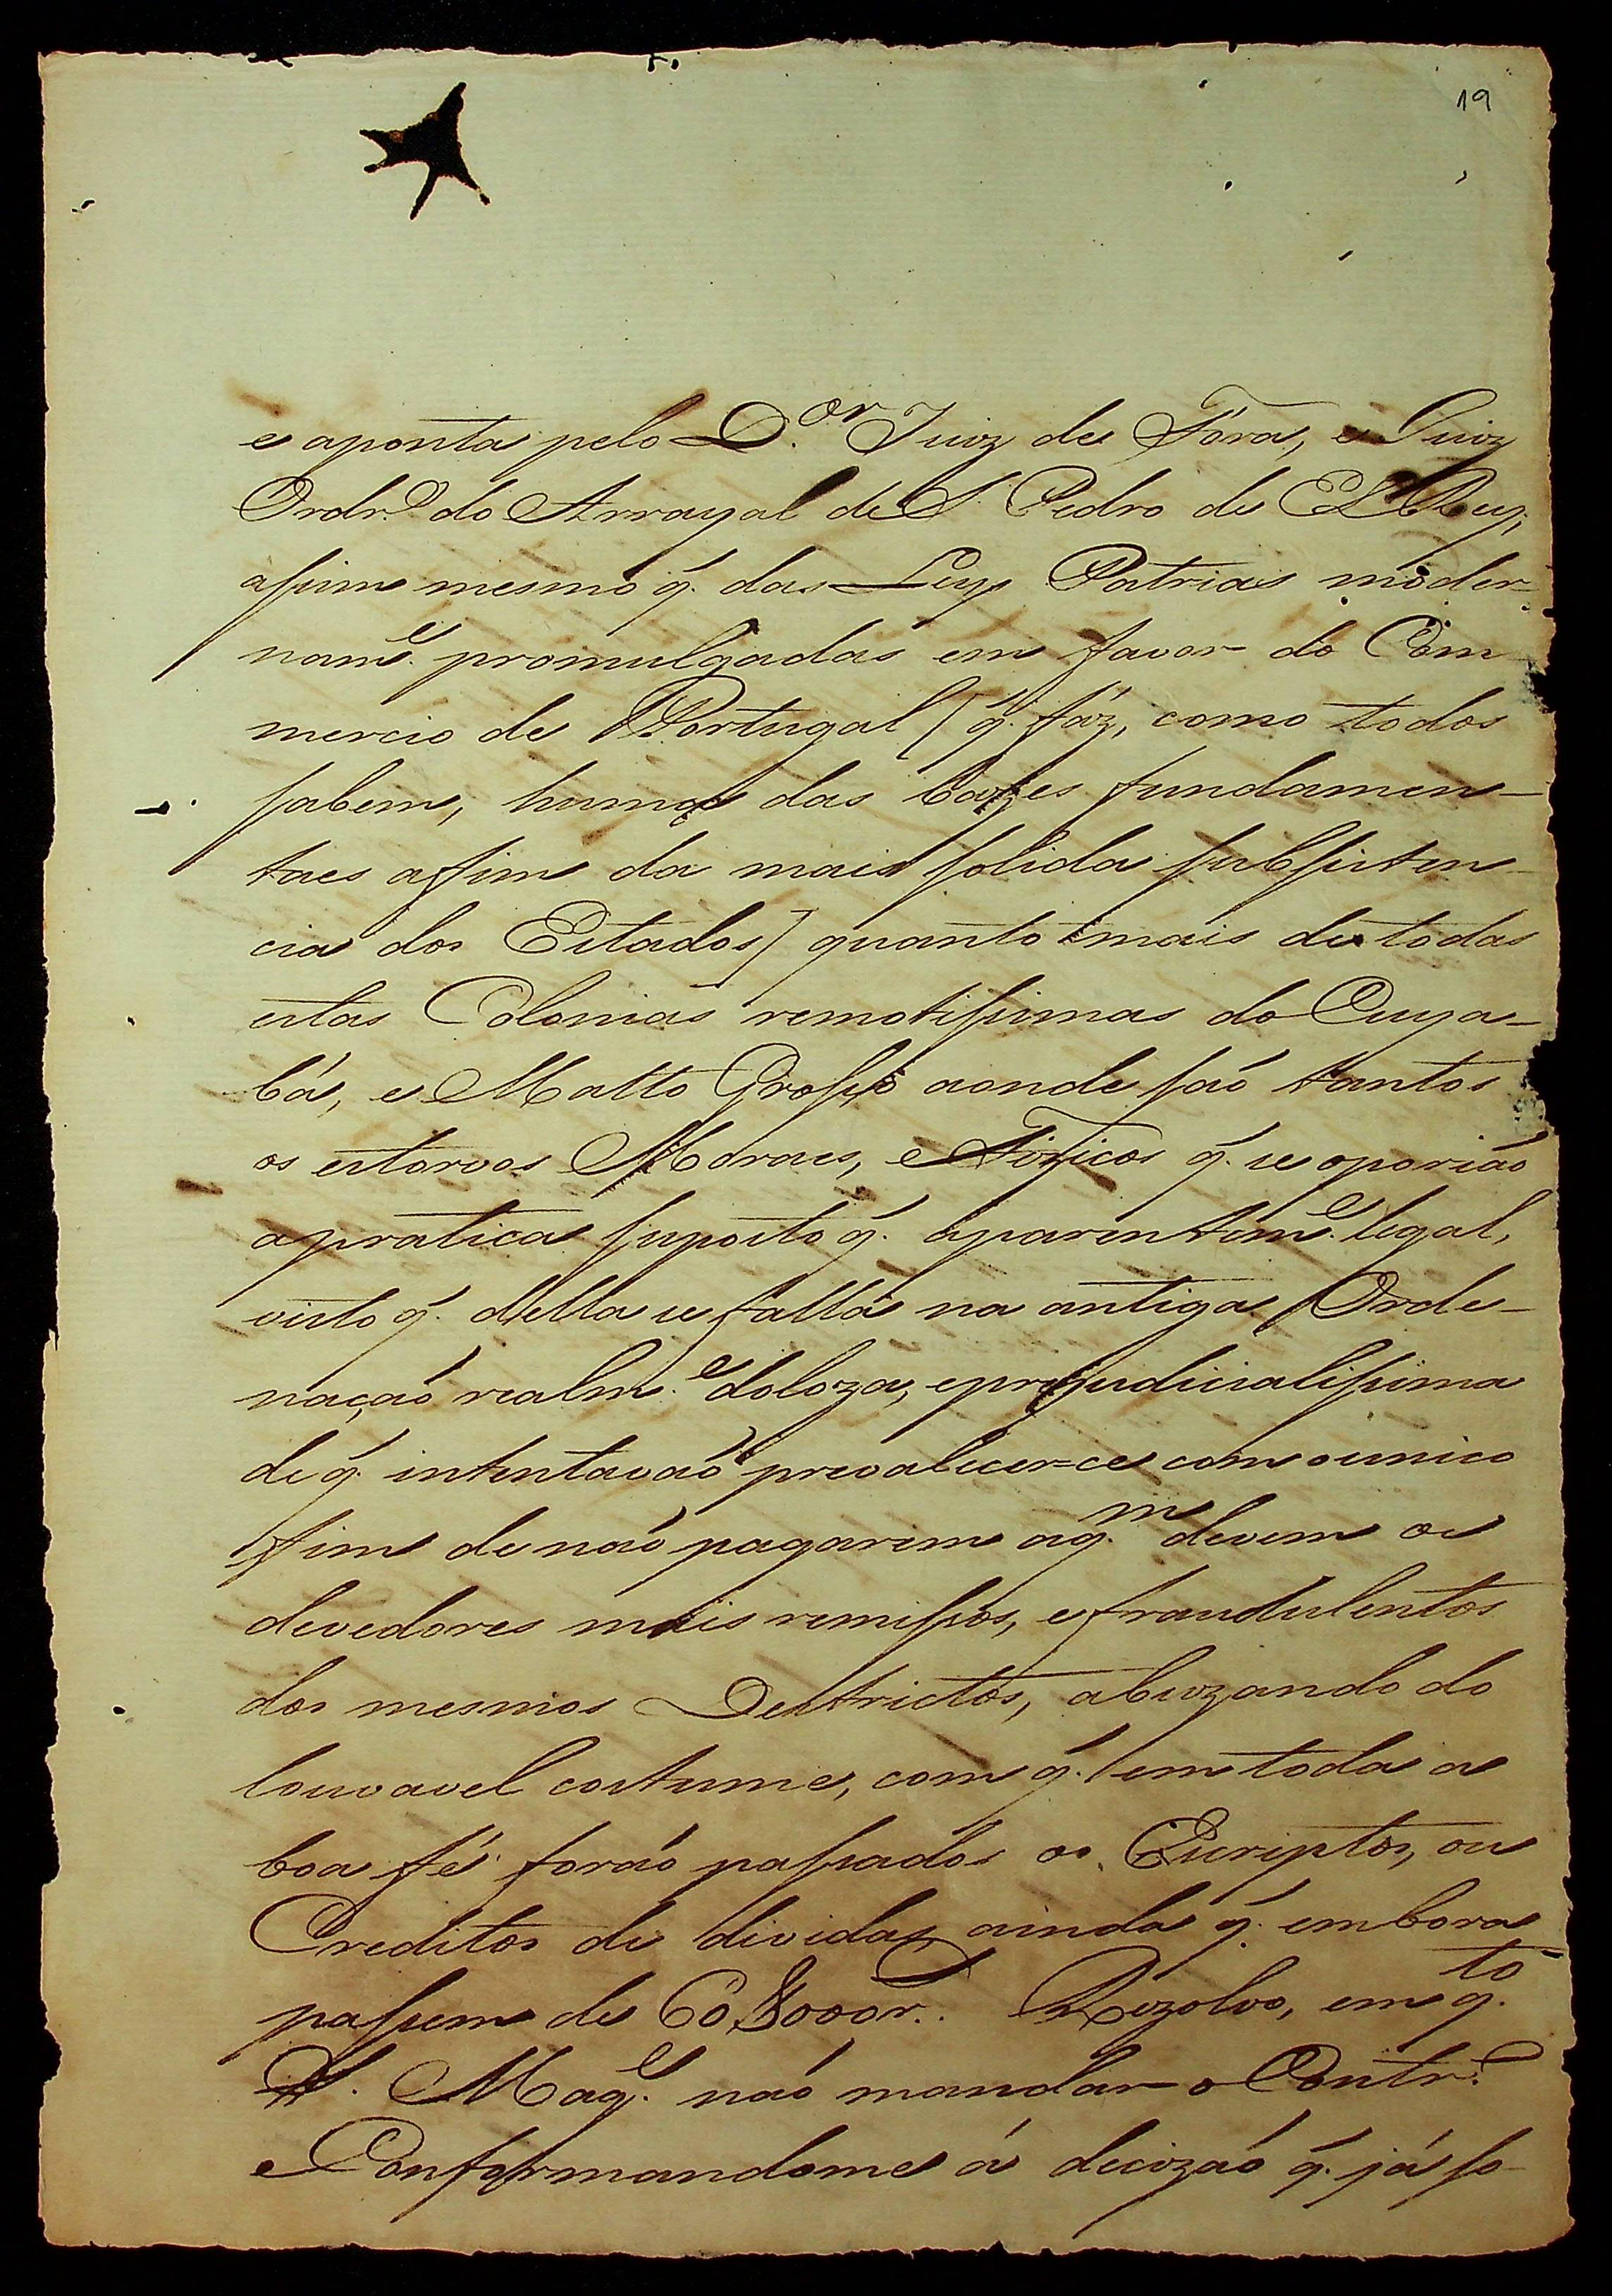 19
e aponta pelo D.or Juiz de Fóra, e Juiz
Ordr.o do Arrayal de S. Pedro de El Rey,
assim mesmo q. das Leys Patrias moder-
nam.e promulgadas em favor do Com-
mercio de Portugal [q. fáz, como todos
sabem, huma das bazes fundamen-
taes afim da mais solida subsisten-
cia dos Estados] quanto mais de todas
estas Colonias remotissimas do Cuya-
bá, e Matto Grosso aonde saõ tantos
os estorvos Moraes, e Fizicos q. se oporiaõ
a pratica suposto q. aparentem.e legal,
visto q. della se falla na antiga Orde-
naçaõ realm.e doloza, e prejudicialissima
de q. intentavaõ prevalecer=ce com o unico
fim de naõ pagarem a q.m devem os
devedores mais remissos, e fraudulentos
dos mesmos Destrictos, abuzando do
louvavel costume, com q. em toda a
boa fé foraõ passados os Escriptos, ou
Creditos de dividas ainda q. embora
passem de 60$000r.. Rezolvo, em q.to
S. Mag.e naõ mandar o Contr.o
e Conformandome á decizaõ q. já fo-